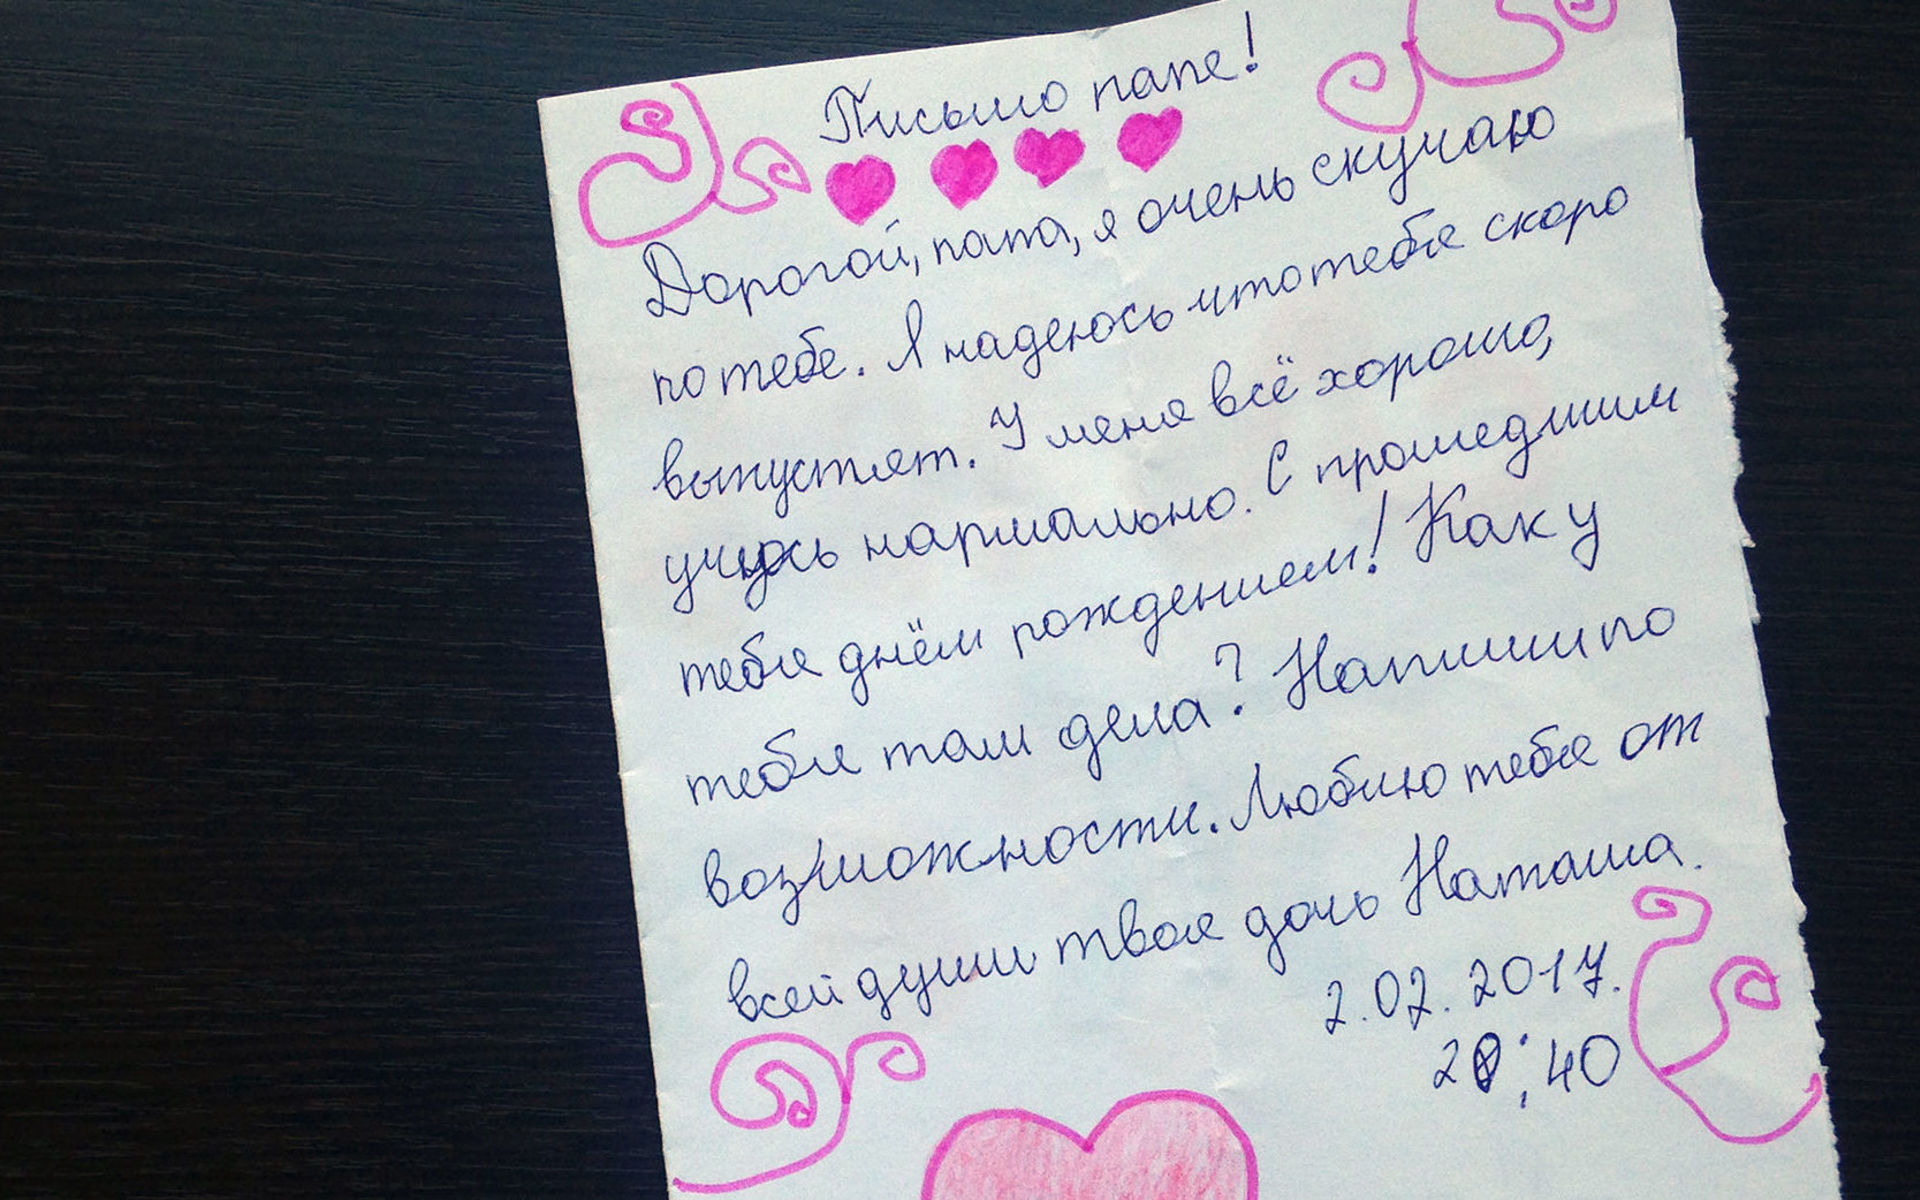 Письмо папе!
Дорогой, папа, я очень скучаю
по тебе. Я надеюсь что тебя скоро
выпустят. У меня всё хорошо,
учусь нармально. С прошедшим
тебя днём рождением! Как у
тебя там дела? Напиши по
возможности. Люблю тебя от
всей души твоя дочь Наташа.
2.02.2017.
20:40